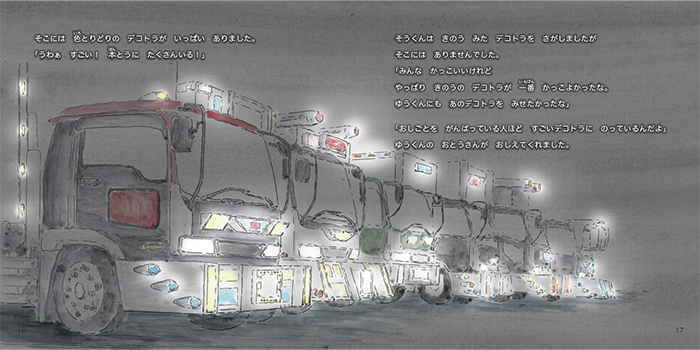 そこには 色とりどりの デコトラが いっぱい ありました。
「うわぁ すごい! 本とうに たくさんいる!」
そうくんは きのう みた デコトラを さがしましたが
そこには ありませんでした。
「みんな かっこいいけれど
やっぱり きのうの デコトラが 一番 かっこよかったな。
ゆうくんにも あのデコトラを みせたかったな」
「おしごとを がんばっている人ほど すごいデコトラに のっているんだよ」
ゆうくんの おとうさんが おしえてくれました。
16
17